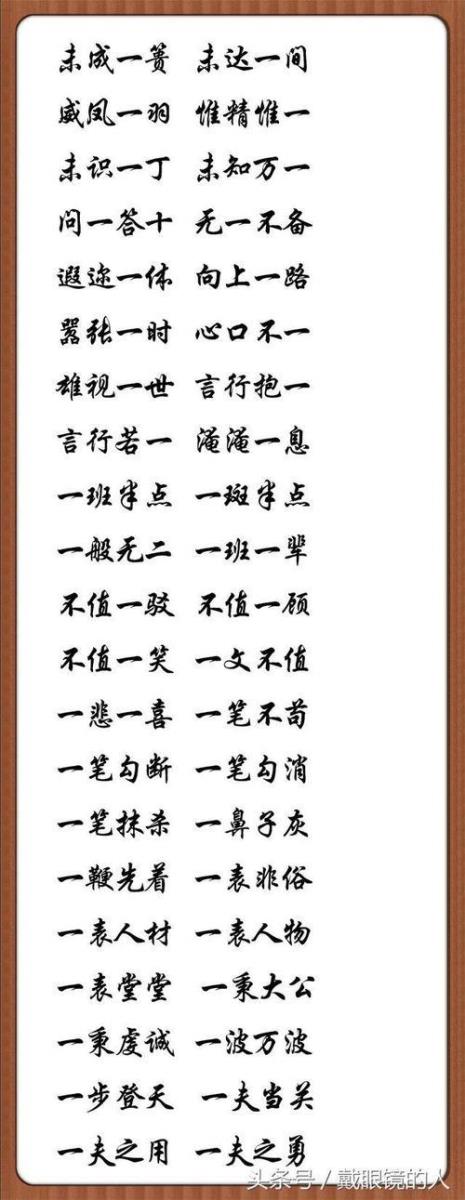 未成一篑 未达一间
威凤一羽 惟精惟一
未识一丁 未知万一
问一答十 无一不备
遐迩一体 向上一路
嚣张一时 心口不一
雄视一世 言行抱一
言行若一 淹淹一息
一班半点 一斑半点
一般无二 一班一辈
不值一驳 不值一顾
不值一笑 一文不值
一悲一喜 一笔不苟
一笔勾断 一笔勾消
一笔抹杀 一鼻子灰
一鞭先着 一表非俗
一表人材 一表人物
一表堂堂 一秉大公
一秉虔诚 一波万波
一步登天 一夫当关
一夫之用 一夫之勇
头条号/戴眼镜的人